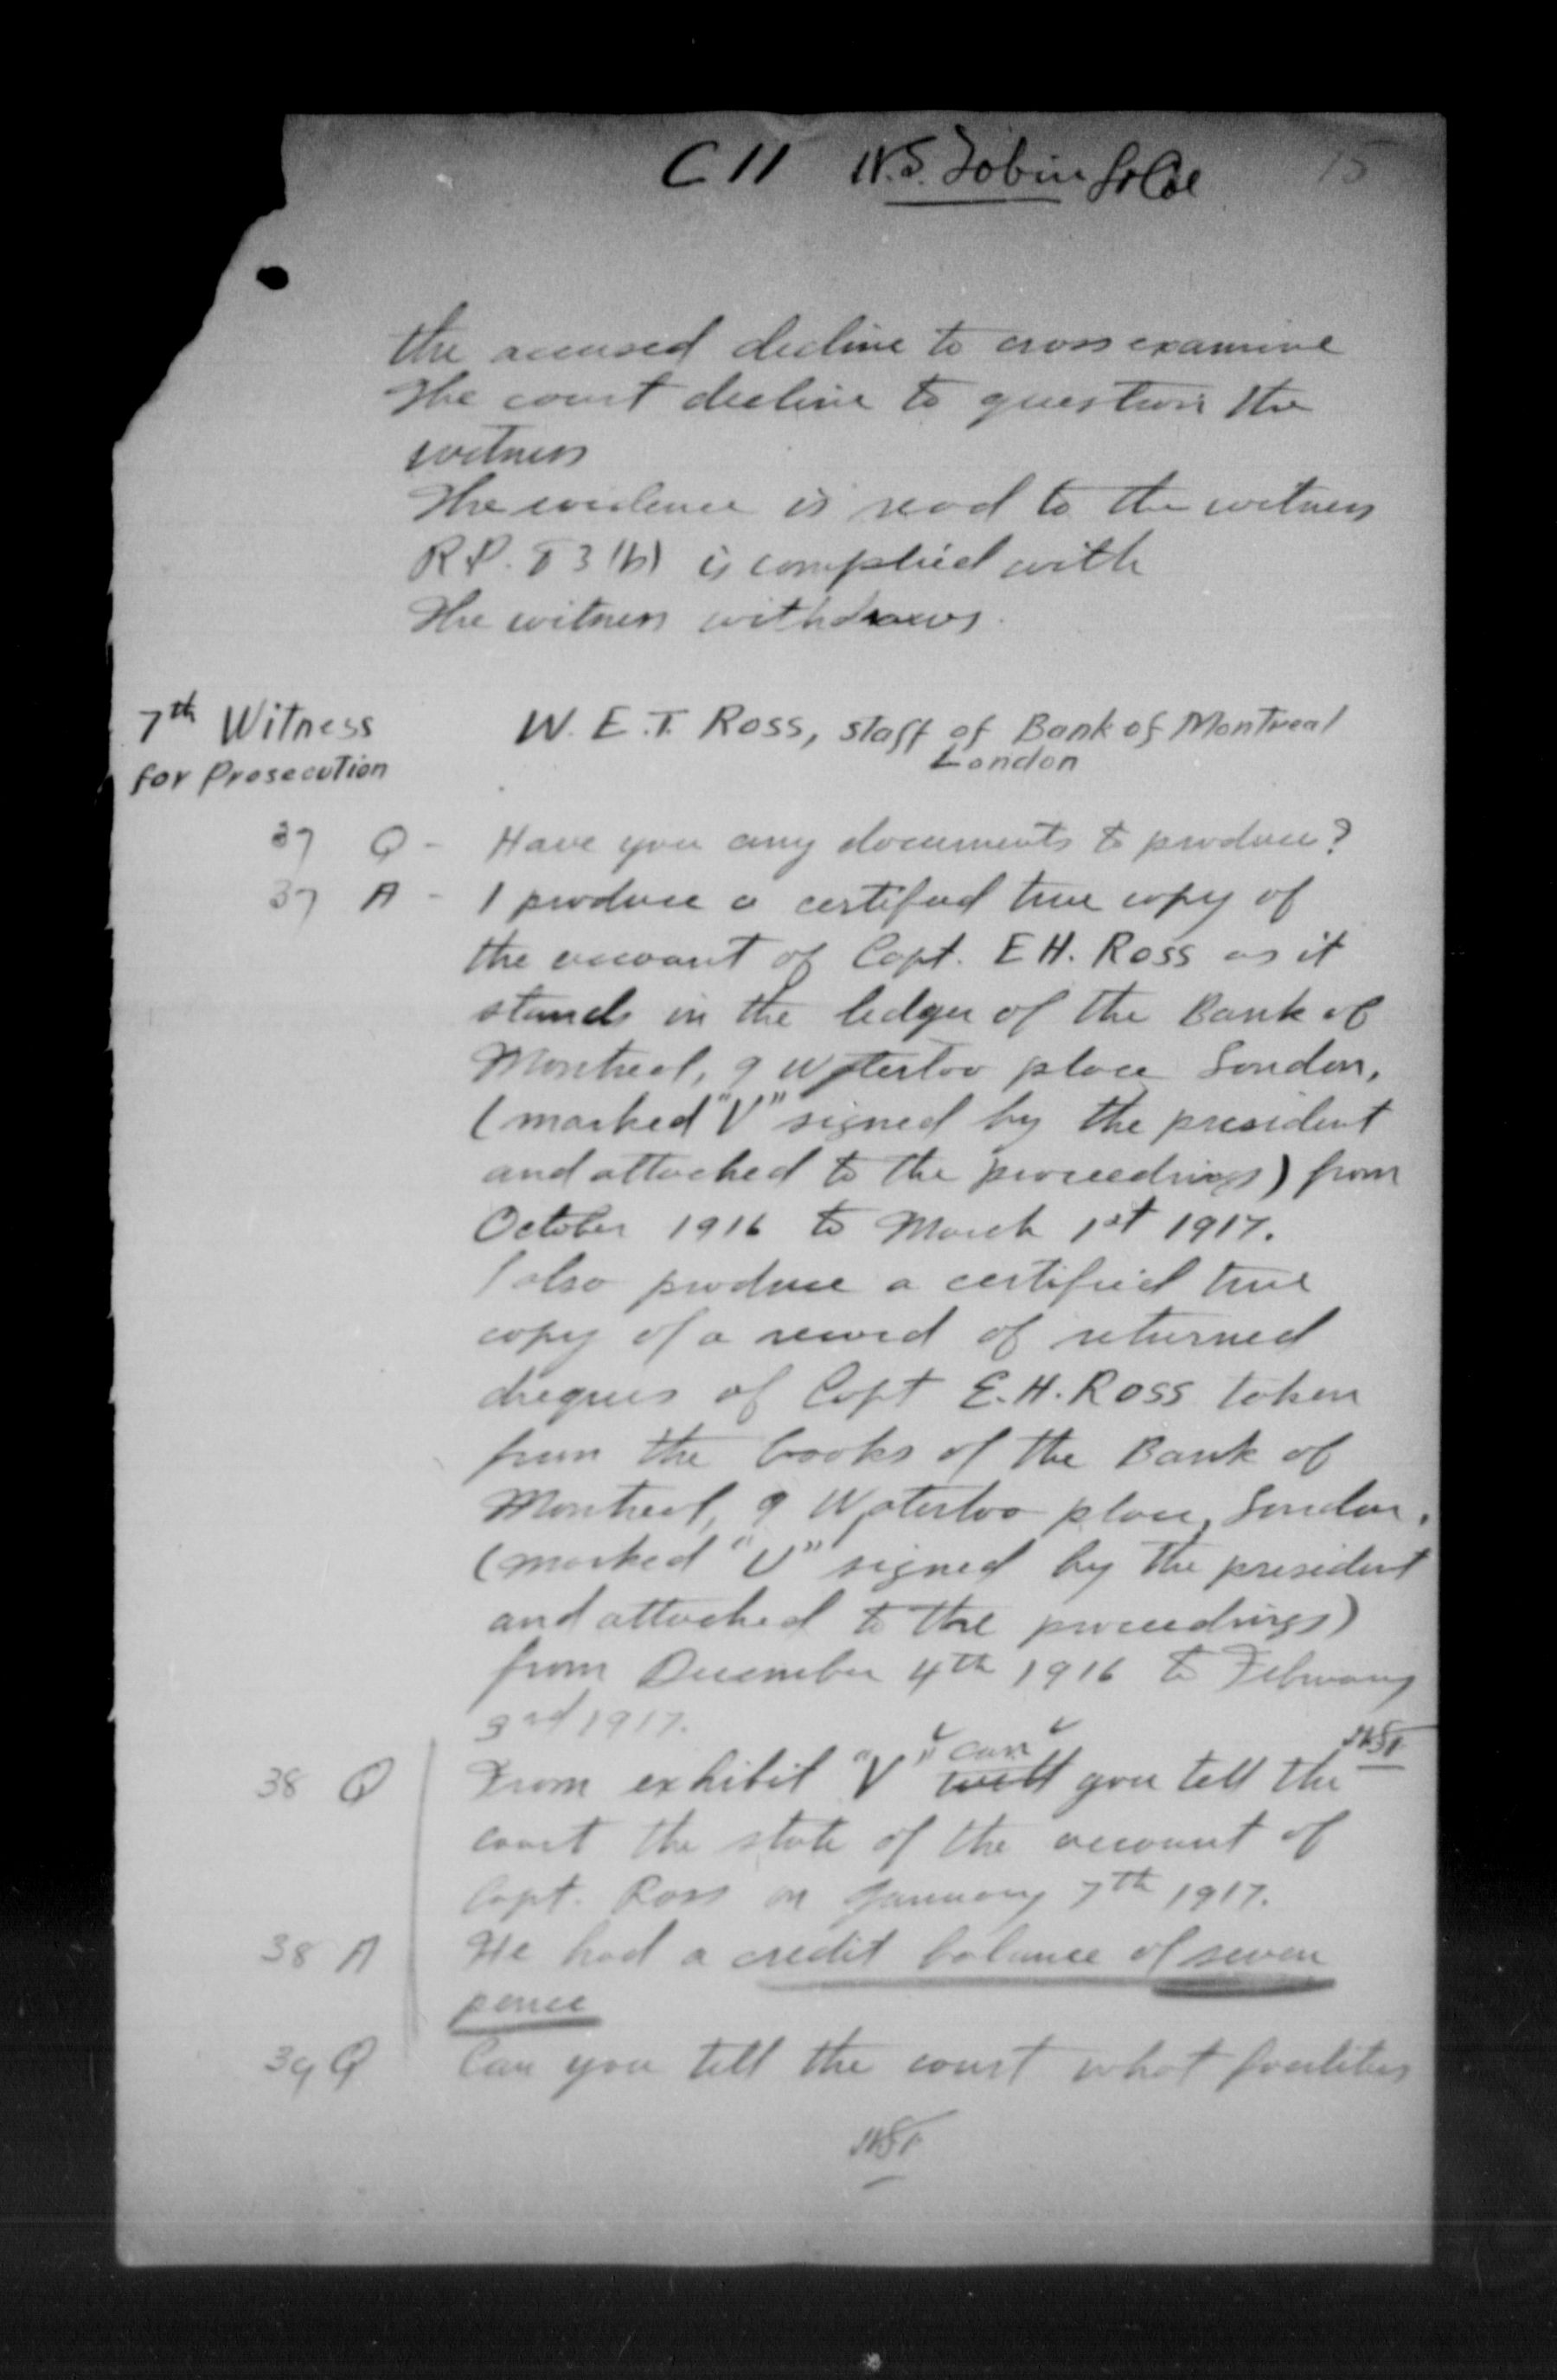 C 11 H.S. Tobin Lt Col 15
the accused decline to cross examine
The court decline to question the
witness
The evidence is read to the witness
R.P. 83 (b) is complied with
The witness withdraws.
7th Witness W. E. T. Ross, staff of Bank of Montreal
for Prosecution London
37 Q - Have you any documents to produce?
37 A - I produce a certified true copy of
the account of Capt. E H. Ross as it
stands in the ledger of the Bank of
Montreal, 9 Waterloo place London,
(marked "V" signed by the president
and attached to the proceedings) from
October 1916 to March 1st 1917.
I also produce a certified true
copy of a record of returned
cheques of Capt E.H. Ross taken
from the books of the Bank of
Montreal, 9 Waterloo place, London.
(marked "U" signed by the president
and attached to the proceedings)
from December 4th 1916 to February
3rd 1917.
can HST
38 Q From exhibit "V" will you tell the
court the state of the account of
Capt. Ross on January 7th 1917.
38 A He had a credit balance of seven
pence
39 Q Can you tell the court what facilities
HST